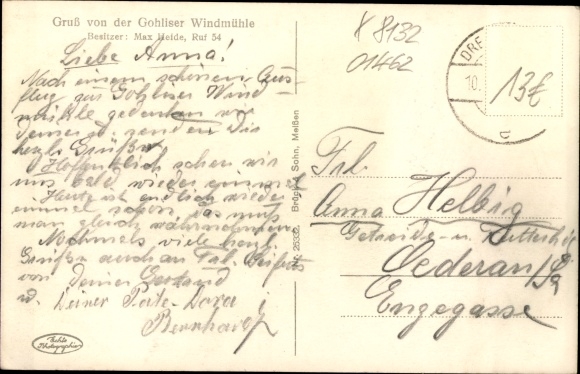 Gruß von der Gohliser Windmühle
Besitzer: Max Heide, Ruf 54
Liebe Anna!
Nach einem schönen Aus-
flug zur Gohliser Wind-
mühle gedenken wir
Deiner u. senden Dir
herzl. Grüße.
Hoffentlich sehen wir
uns bald wieder einmal
Heute ist endlich wieder
einmal schön, das muß
man gleich wahrnehmen.
Nochmals viele herzl.
Grüße auch an Frl.
von Deiner Gertrud
u. Deiner Pate Dora
Bernhardt
X 8132
01462
DRE
10.
13€
c
Frl.
Anna Helbig
Getreide- u.
Oederan/Sa
Engegasse
Brück & Sohn, Meißen
Echte
Photographie